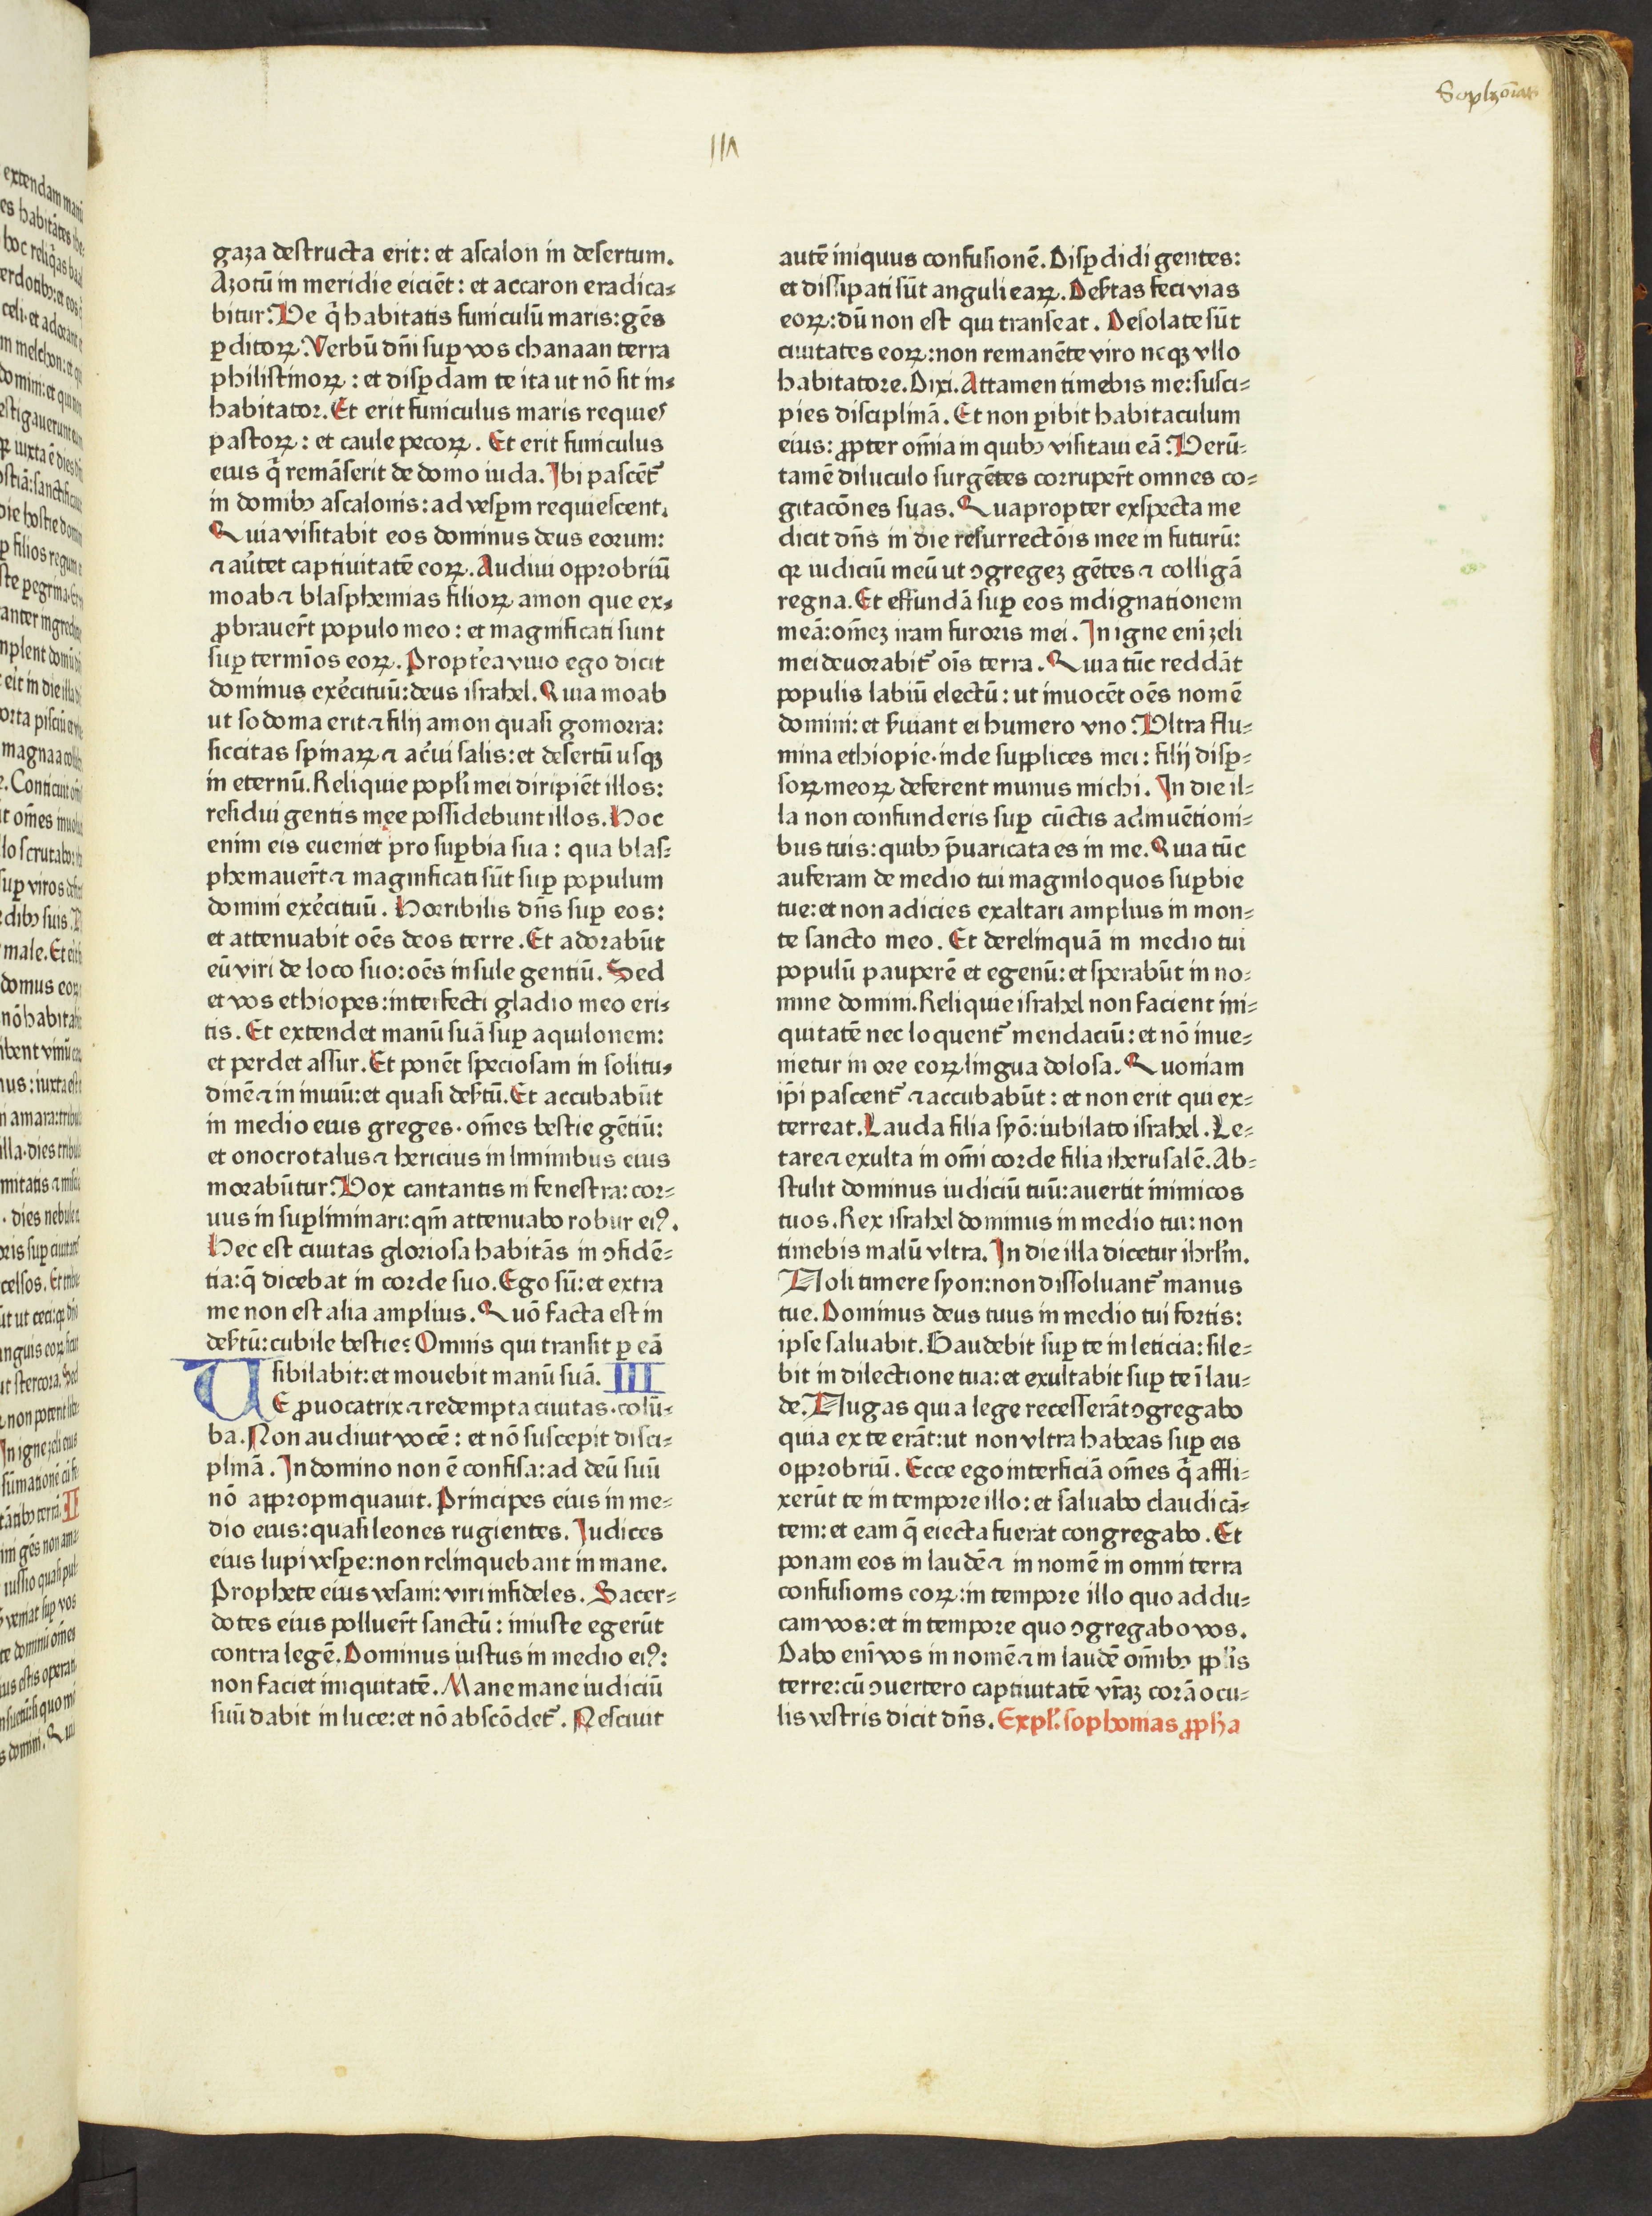 Sophonias
gaza destructa erit: et ascalon in desertum.
Azotū in meridie eiciēt: et accaron eradica⸗
bitur. Ve q̄ habitatis funiculū maris: gēs
ꝑditoꝝ. Verbū dn̄i suꝑ vos chanaan terra
philistinoꝝ: et disꝑdam te ita ut nō sit in⸗
habitator. Et erit funiculus maris requies
pastoꝝ: et caule pecoꝝ. Et erit funiculus
eius q̄ remāserit de domo iuda. Ibi pascēt᷑
in domibꝫ ascalonis: ad vesꝑm requiescent.
Quia visitabit eos dominus deus eorum:
⁊ aūtet captiuitatē eoꝝ. Audiui oꝓbriū
moab ⁊ blasphemias filioꝝ amon que ex⸗
ꝓbrauerūt populo meo: et magnificati sunt
suꝑ termīos eoꝝ. Propt̄ea viuo ego dicit
dominus exēcituū: deus israhel. Quia moab
ut sodoma erit ⁊ filij amon quasi gomorra:
siccitas spinaꝝ ⁊ ac̄ui salis: et desertū usqꝫ
in eternū. Reliquie popl̄i mei diripiēt illos:
residui gentis mee possidebunt illos. Hoc
enim eis eueniet pro suꝑbia sua: qua blas⸗
phemauer̄t ⁊ magnificati sūt suꝑ populum
domini exēcituū. Horribilis dn̄s suꝑ eos:
et attenuabit oēs deos terre. Et adorabūt
eū viri de loco suo: oēs insule gentiū. Sed
et vos ethiopes: interfecti gladio meo eri⸗
tis. Et extendet manū suā suꝑ aquilonem:
et perdet assur. Et ponēt speciosam in solitu⸗
dinē ⁊ in inuiū: et quasi deẜtū. Et accubabūt
in medio eius greges. om̄es bestie gētiū:
et onocrotalus ⁊ hericius in liminibus eius
morabūtur. Vox cantantis in fenestra: cor⸗
uus in suꝑliminari: qm̄ attenuabo robur eiꝰ.
Hec est ciuitas gloriosa habitās in ꝯfidē⸗
tia: q̄ dicebat in corde suo. Ego sū: et extra
me non est alia amplius. Quō facta est in
deẜtū: cubile bestie? Omnis qui transit ꝑ eā
sibilabit: et mouebit manū suā. III
VE ꝓuocatrix ⁊ redempta ciuitas. colū⸗
ba. Non audiuit vocē: et nō suscepit disci⸗
plinā. In domino non ē confisa: ad deū suū
nō aꝓpinquauit. Principes eius in me⸗
dio eius: quasi leones rugientes. Iudices
eius lupi vesꝑe: non relinquebant in mane.
Prophete eius vesani: viri infideles. Sacer⸗
dotes eius polluer̄t sanctū: iniuste egerūt
contra legē. Dominus iustus in medio eiꝰ:
non faciet iniquitatē. Mane mane iudiciū
suū dabit in luce: et nō abscōdet᷑. Nesciuit
autē iniquus confusionē. Disꝑdidi gentes:
et dissipati sūt anguli eaꝝ. Deẜtas feci vias
eoꝝ: dū non est qui transeat. Desolate sūt
ciuitates eoꝝ: non remanēte viro neqꝫ vllo
habitatore. Dixi. Attamen timebis me: susci⸗
pies disciplinā. Et non ꝑibit habitaculum
eius: ꝓpter om̄ia in quibꝫ visitaui eā. Verū⸗
tamē diluculo surgētes corruper̄t omnes co⸗
gitacōnes suas. Quapropter exspecta me
dicit dn̄s in die resurrectōis mee in futurū:
qꝛ iudiciū meū ut ꝯgregeꝫ gētes ⁊ colligā
regna. Et effundā suꝑ eos indignationem
meā: om̄eꝫ iram furoris mei. In igne eni᷑ zeli
mei deuorabit᷑ oīs terra. Quia tūc reddāt
populis labiū electū: ut inuocēt oēs nomē
domini: et ẜuiant ei humero vno. Vltra flu⸗
mina ethiopie. inde suꝓlices mei: filij disꝑ⸗
soꝝ meoꝝ deferent munus michi. In die il⸗
la non confunderis suꝑ cūctis adinuētioni⸗
bus tuis: quibꝫ p̄uaricata es in me. Quia tūc
auferam de medio tui magniloquos suꝑbie
tue: et non adicies exaltari amplius in mon⸗
te sancto meo. Et derelinquā in medio tui
populū pauperē et egenū: et sperabūt in no⸗
mine domini. Reliquie israhel non facient ini⸗
quitatē nec loquent᷑ mendaciū: et nō inue⸗
nietur in ore eoꝝ lingua dolosa. Quoniam
ip̄i pascent᷑ ⁊ accubabūt: et non erit qui ex⸗
terreat. Lauda filia syō: iubilato israhel. Le⸗
tare ⁊ exulta in om̄i corde filia iherusalē. Ab⸗
stulit dominus iudiciū tuū: auertit inimicos
tuos. Rex israhel dominus in medio tui: non
timebis malū vltra. In die illa dicetur ihrl̄m.
Noli timere syon: non dissoluant᷑ manus
tue. Dominus deus tuus in medio tui fortis:
ipse saluabit. Gaudebit suꝑ te in leticia: sile⸗
bit in dilectione tua: et exultabit suꝑ te ī lau⸗
de. Nugas qui a lege recesserāt ꝯgregabo
quia ex te erāt: ut non vltra habeas suꝑ eis
oꝓbriū. Ecce ego interficiā om̄es q̄ affli⸗
xerūt te in tempore illo: et saluabo claudicā⸗
tem: et eam q̄ eiecta fuerat congregabo. Et
ponam eos in laudē ⁊ in nomē in omni terra
confusionis eoꝝ: in tempore illo quo addu⸗
cam vos: et in tempore quo ꝯgregabo vos.
Dabo eni᷑ vos in nomē ⁊ in laudē om̄ibꝫ ppl̄is
terre: cū ꝯuertero captiuitatē vr̄aꝫ corā ocu⸗
lis vestris dicit dn̄s. Expl̄. sophonias ꝓpha